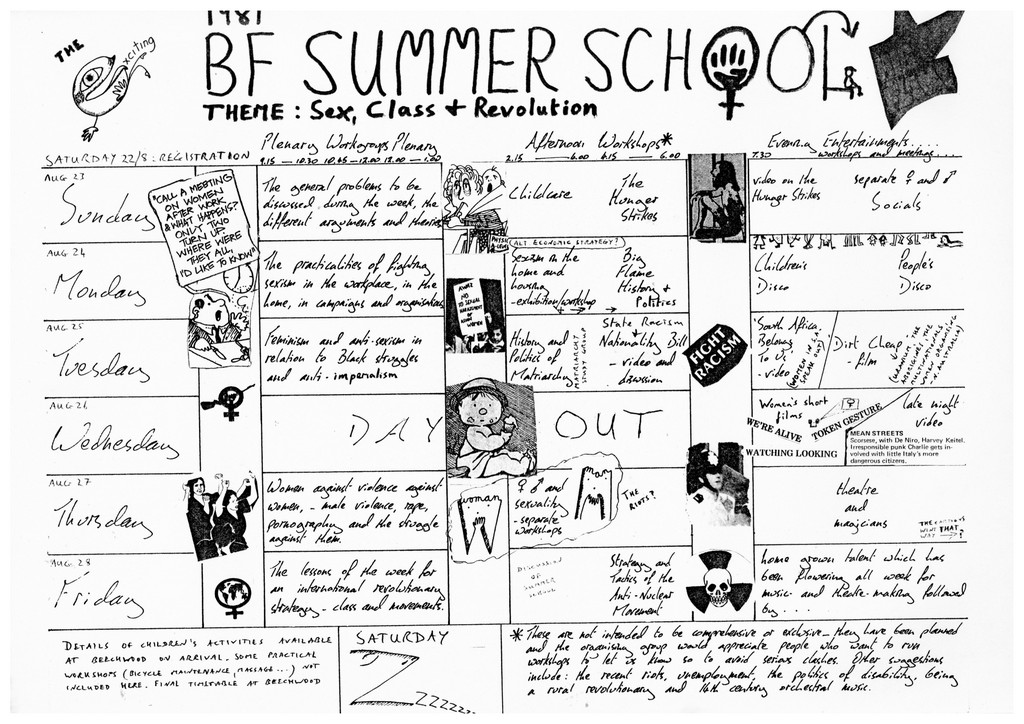 1981
THE
xciting
BF SUMMER SCHOOL
THEME : Sex, Class + Revolution
SATURDAY 22/8 : REGISTRATION
Plenary Workgroups Plenary
9.15 — 10.30 10.45 — 12.00 12.00 — 1.00
Afternoon Workshops*
2.15 — 4.00 4.15 — 6.00
Evening Entertainments....
7.30 workshops and meetings....
AUG 23
Sunday
"CALL A MEETING
ON WOMEN
AFTER WORK
& WHAT HAPPENS?
ONLY TWO
TURN UP.
WHERE WERE
THEY ALL,
I'D LIKE TO KNOW"
The general problems to be
discussed during the week, the
different arguments and theories
Childcare
The
Hunger
Strikes
video on the
Hunger Strikes
separate ♀ and ♂
Socials
AUG 24
Monday
The practicalities of fighting
sexism in the workplace, in the
home, in campaigns and organisations
(ALT. ECONOMIC STRATEGY?)
Sexism in the
home and
housing
- exhibition/workshop
Big
Flame
History +
Politics
Children's
Disco
People's
Disco
NO TO SEXUAL
HARASSMENT
WOMEN
AUG 25
Tuesday
Feminism and anti-sexism in
relation to Black struggles
and anti-imperialism
History and
Politics of
Matriarchy
MATRIARCHY
STUDY GROUP
State Racism
+
Nationality Bill
- video and
discussion
FIGHT
RACISM
'South Africa
Belongs
To Us'
- video
(WOMEN IN S.A.
SPEAK OUT)
Dirt Cheap
- film
AUG 26
Wednesday
DAY OUT
Women's short
films
WE'RE ALIVE
TOKEN GESTURE
WATCHING LOOKING
late night
video
MEAN STREETS
Scorsese, with De Niro, Harvey Keitel.
Irresponsible punk Charlie gets in-
volved with little Italy's more
dangerous citizens.
AUG 27
Thursday
Women against violence against
women, - male violence, rape,
pornography and the struggle
against them.
woman
♀ ♂ and
sexuality
- separate
workshops
man
THE
RIOTS?
theatre
and
magicians
WENT THAT
WAY
AUG 28
Friday
The lessons of the week for
an international revolutionary
strategy - class and movements.
DISCUSSION
OF SUMMER
SCHOOL
Strategy and
Tactics of the
Anti-Nuclear
Movement
home grown talent which has
been flowering all week for
music- and theatre-making followed
by....
DETAILS OF CHILDREN'S ACTIVITIES AVAILABLE
AT BEECHWOOD ON ARRIVAL. SOME PRACTICAL
WORKSHOPS (BICYCLE MAINTENANCE, MASSAGE...) NOT
INCLUDED HERE. FINAL TIMETABLE AT BEECHWOOD
SATURDAY
Zzzzzzz...
* These are not intended to be comprehensive or exclusive - they have been planned
and the organising group would appreciate people who want to run
workshops to let us know so to avoid serious clashes. Other suggestions
include: the recent riots, unemployment, the politics of disability, being
a rural revolutionary and 16th century orchestral music.